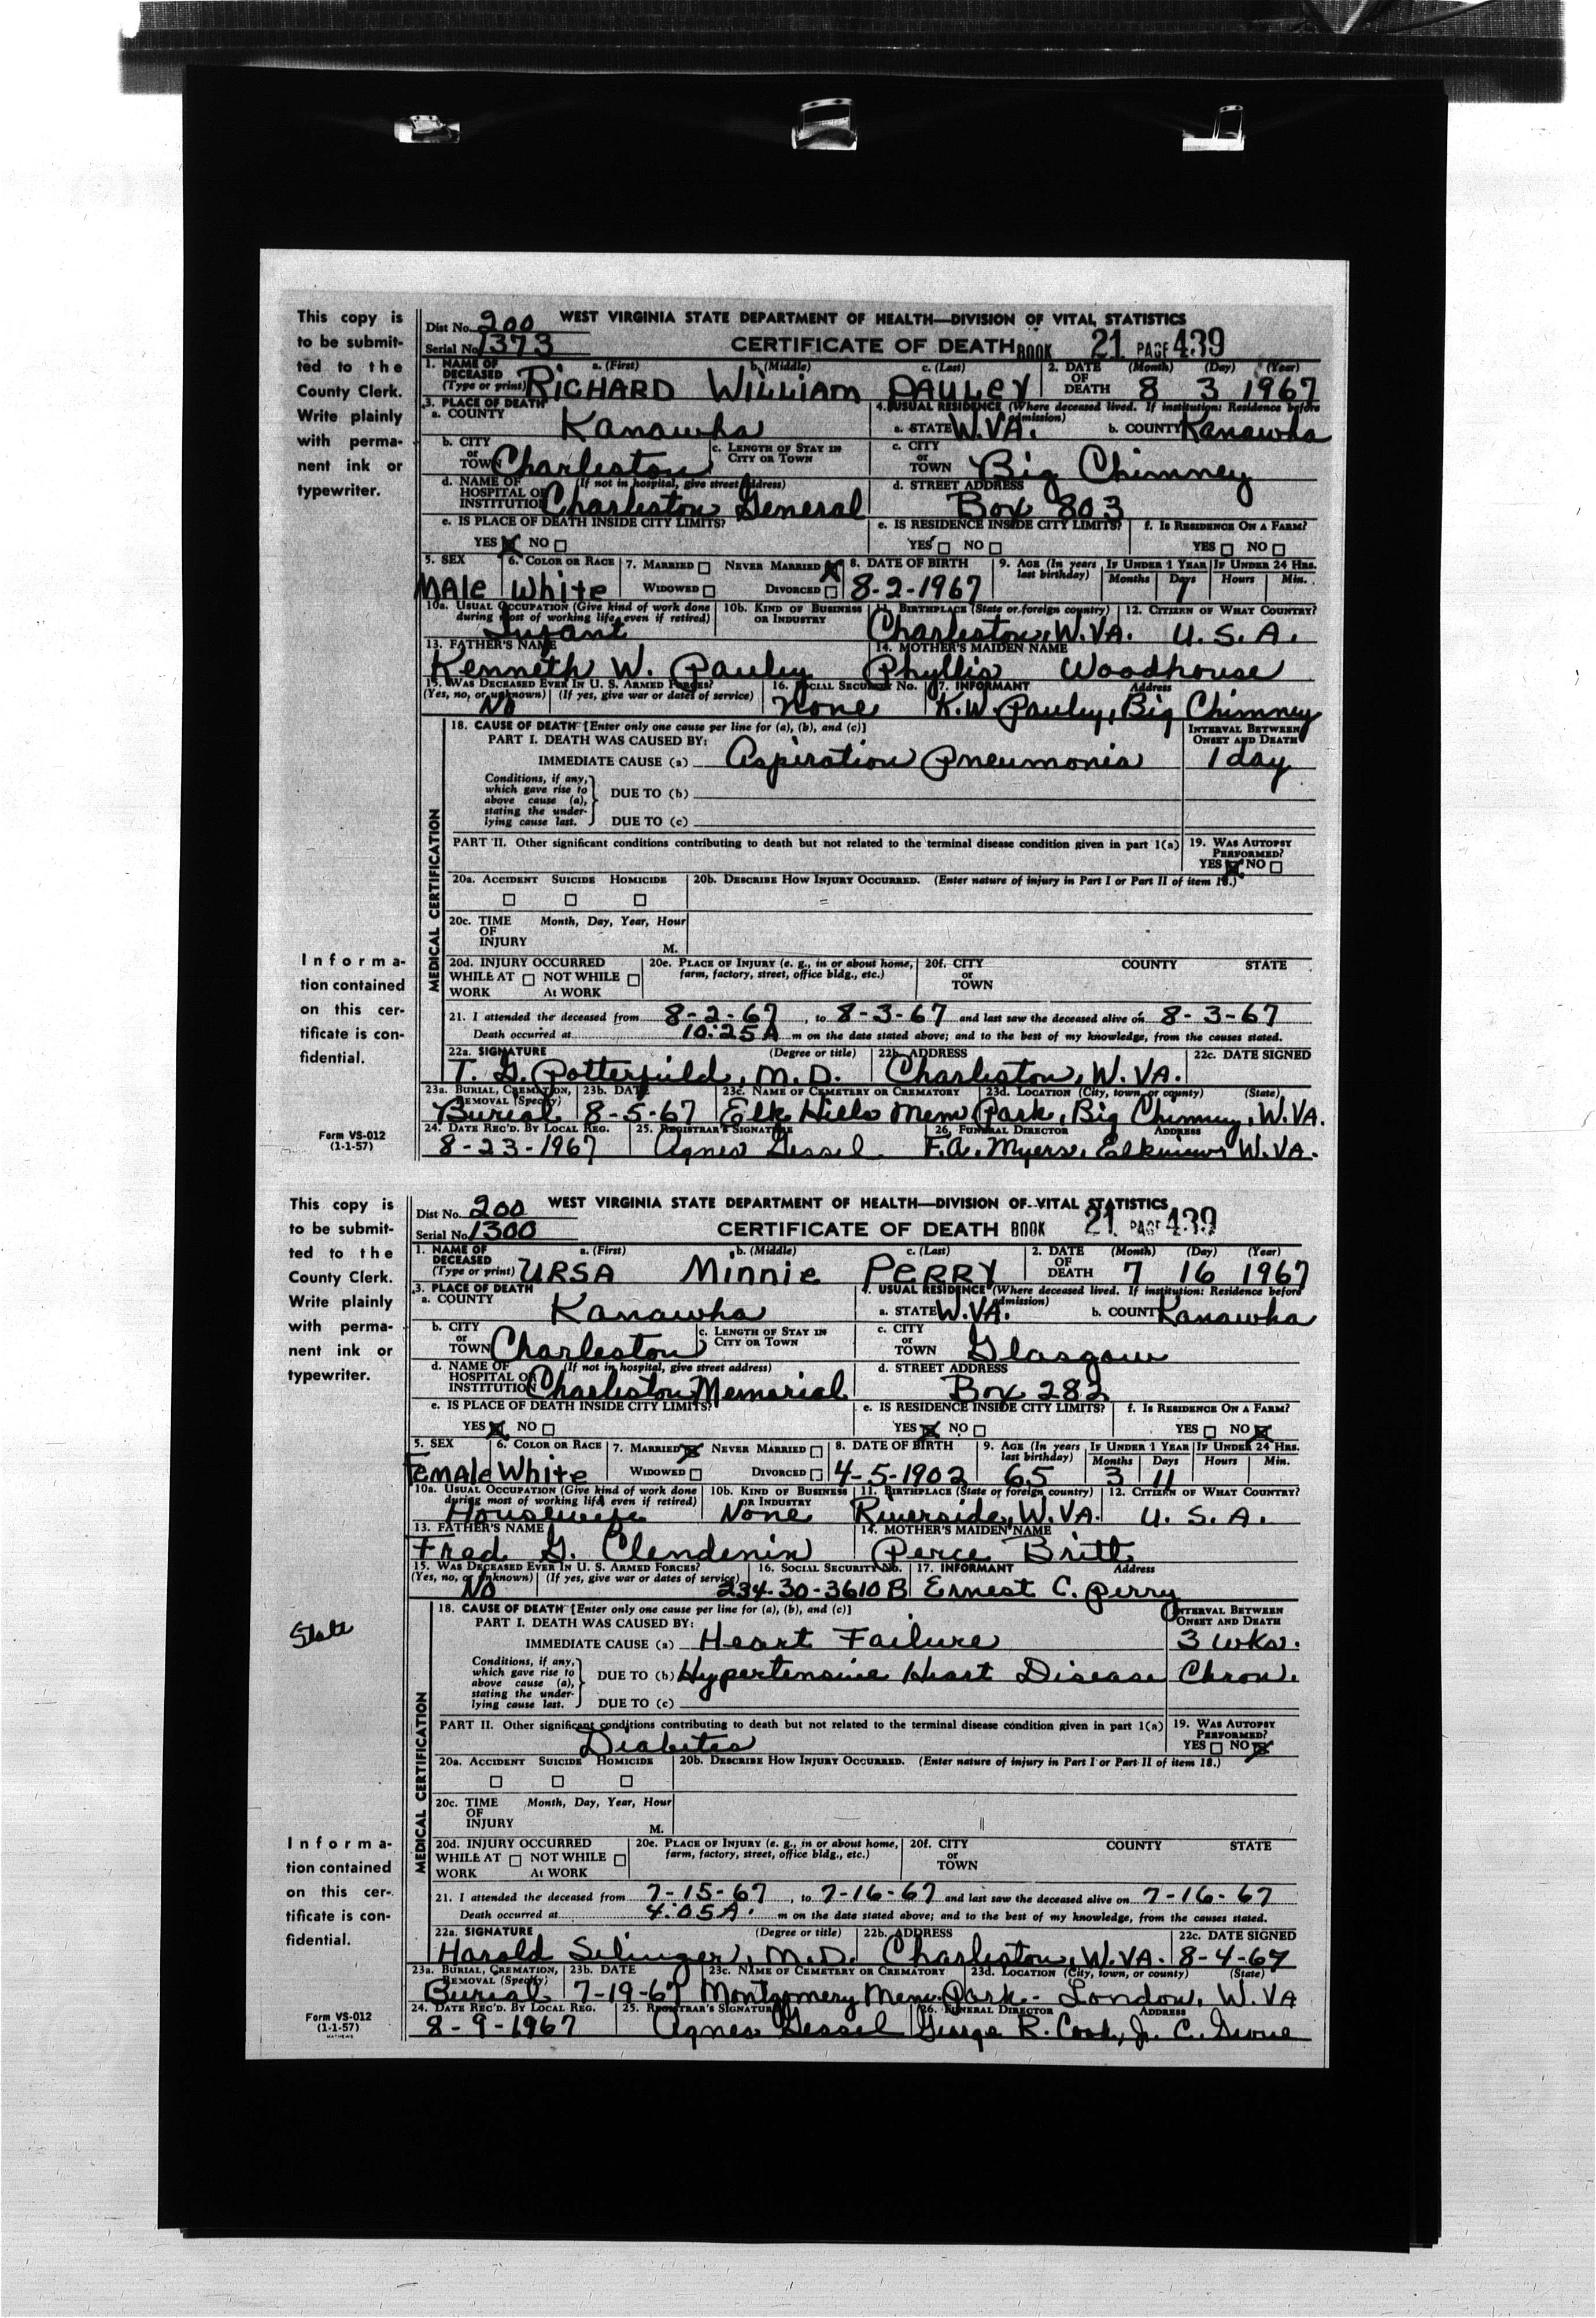 This copy is
to be submit-
ted to the
County Clerk.
Write plainly
with perma-
nent ink or
typewriter.
Informa-
tion contained
on this cer-
tificate is con-
fidential.
Form VS-012
(1-1-57)
Dist No. 200 WEST VIRGINIA STATE DEPARTMENT OF HEALTH—DIVISION OF VITAL STATISTICS
Serial No. 1373 CERTIFICATE OF DEATH BOOK 21 PAGE 439
1. NAME OF DECEASED (Type or print) a. (First) b. (Middle) c. (Last) RICHARD WILLIAM PAULEY 2. DATE OF DEATH (Month) (Day) (Year) 8 3 1967
3. PLACE OF DEATH a. COUNTY Kanawha 4. USUAL RESIDENCE (Where deceased lived. If institution: Residence before admission) a. STATE W.VA. b. COUNTY Kanawha
b. CITY or TOWN Charleston c. LENGTH OF STAY IN CITY OR TOWN c. CITY or TOWN Big Chimney
d. NAME OF HOSPITAL OR INSTITUTION (If not in hospital, give street address) Charleston General d. STREET ADDRESS Box 803
e. IS PLACE OF DEATH INSIDE CITY LIMITS? e. IS RESIDENCE INSIDE CITY LIMITS? f. IS RESIDENCE ON A FARM?
YES ☒ NO ☐ YES ☐ NO ☐ YES ☐ NO ☐
5. SEX Male 6. COLOR OR RACE White 7. MARRIED ☐ NEVER MARRIED ☒ WIDOWED ☐ DIVORCED ☐ 8. DATE OF BIRTH 8-2-1967 9. AGE (In years last birthday) IF UNDER 1 YEAR Months Days 1 IF UNDER 24 HRS. Hours Min.
10a. USUAL OCCUPATION (Give kind of work done during most of working life, even if retired) Infant 10b. KIND OF BUSINESS OR INDUSTRY 11. BIRTHPLACE (State or foreign country) Charleston, W.VA. 12. CITIZEN OF WHAT COUNTRY? U.S.A.
13. FATHER'S NAME Kenneth W. Pauley 14. MOTHER'S MAIDEN NAME Phyllis Woodhouse
15. WAS DECEASED EVER IN U. S. ARMED FORCES? (Yes, no, or unknown) (If yes, give war or dates of service) No 16. SOCIAL SECURITY No. None 17. INFORMANT Address K.W. Pauley, Big Chimney
MEDICAL CERTIFICATION
18. CAUSE OF DEATH [Enter only one cause per line for (a), (b), and (c)] INTERVAL BETWEEN ONSET AND DEATH
PART I. DEATH WAS CAUSED BY:
IMMEDIATE CAUSE (a) Aspiration Pneumonia 1 day
Conditions, if any, which gave rise to above cause (a), stating the underlying cause last. DUE TO (b)
DUE TO (c)
PART II. Other significant conditions contributing to death but not related to the terminal disease condition given in part 1(a) 19. WAS AUTOPSY PERFORMED? YES ☒ NO ☐
20a. ACCIDENT SUICIDE HOMICIDE 20b. DESCRIBE HOW INJURY OCCURRED. (Enter nature of injury in Part I or Part II of item 18.)
20c. TIME OF INJURY Month, Day, Year, Hour M.
20d. INJURY OCCURRED WHILE AT WORK ☐ NOT WHILE At WORK ☐ 20e. PLACE OF INJURY (e. g., in or about home, farm, factory, street, office bldg., etc.) 20f. CITY or TOWN COUNTY STATE
21. I attended the deceased from 8-2-67, to 8-3-67 and last saw the deceased alive on 8-3-67
Death occurred at 10:25A m on the date stated above; and to the best of my knowledge, from the causes stated.
22a. SIGNATURE (Degree or title) T. G. Potterfield, M.D. 22b. ADDRESS Charleston, W.VA. 22c. DATE SIGNED
23a. BURIAL, CREMATION, REMOVAL (Specify) Burial 23b. DATE 8-5-67 23c. NAME OF CEMETERY OR CREMATORY Elk Hills Mem Park, 23d. LOCATION (City, town, or county) (State) Big Chimney, W.VA.
24. DATE REC'D. BY LOCAL REG. 8-23-1967 25. REGISTRAR'S SIGNATURE Agnes Gessel 26. FUNERAL DIRECTOR ADDRESS F.A. Myers, Elkview W.VA.
This copy is
to be submit-
ted to the
County Clerk.
Write plainly
with perma-
nent ink or
typewriter.
State
Informa-
tion contained
on this cer-
tificate is con-
fidential.
Form VS-012
(1-1-57)
MATHEWS
Dist No. 200 WEST VIRGINIA STATE DEPARTMENT OF HEALTH—DIVISION OF VITAL STATISTICS
Serial No. 1300 CERTIFICATE OF DEATH BOOK 21 PAGE 439
1. NAME OF DECEASED (Type or print) a. (First) b. (Middle) c. (Last) URSA Minnie PERRY 2. DATE OF DEATH (Month) (Day) (Year) 7 16 1967
3. PLACE OF DEATH a. COUNTY Kanawha 4. USUAL RESIDENCE (Where deceased lived. If institution: Residence before admission) a. STATE W.VA. b. COUNTY Kanawha
b. CITY or TOWN Charleston c. LENGTH OF STAY IN CITY OR TOWN c. CITY or TOWN Glasgow
d. NAME OF HOSPITAL OR INSTITUTION (If not in hospital, give street address) Charleston Memorial d. STREET ADDRESS Box 282
e. IS PLACE OF DEATH INSIDE CITY LIMITS? e. IS RESIDENCE INSIDE CITY LIMITS? f. IS RESIDENCE ON A FARM?
YES ☒ NO ☐ YES ☒ NO ☐ YES ☐ NO ☒
5. SEX Female 6. COLOR OR RACE White 7. MARRIED ☒ NEVER MARRIED ☐ WIDOWED ☐ DIVORCED ☐ 8. DATE OF BIRTH 4-5-1902 9. AGE (In years last birthday) 65 IF UNDER 1 YEAR Months 3 Days 11 IF UNDER 24 HRS. Hours Min.
10a. USUAL OCCUPATION (Give kind of work done during most of working life, even if retired) Housewife 10b. KIND OF BUSINESS OR INDUSTRY None 11. BIRTHPLACE (State or foreign country) Riverside, W.VA. 12. CITIZEN OF WHAT COUNTRY? U.S.A.
13. FATHER'S NAME Fred G. Clendenin 14. MOTHER'S MAIDEN NAME Perce Britt
15. WAS DECEASED EVER IN U. S. ARMED FORCES? (Yes, no, or unknown) (If yes, give war or dates of service) No 16. SOCIAL SECURITY No. 234-30-3610B 17. INFORMANT Address Ernest C. Perry
MEDICAL CERTIFICATION
18. CAUSE OF DEATH [Enter only one cause per line for (a), (b), and (c)] INTERVAL BETWEEN ONSET AND DEATH
PART I. DEATH WAS CAUSED BY:
IMMEDIATE CAUSE (a) Heart Failure 3 wks.
Conditions, if any, which gave rise to above cause (a), stating the underlying cause last. DUE TO (b) Hypertensive Heart Disease Chron.
DUE TO (c)
PART II. Other significant conditions contributing to death but not related to the terminal disease condition given in part 1(a) Diabetes 19. WAS AUTOPSY PERFORMED? YES ☐ NO ☒
20a. ACCIDENT SUICIDE HOMICIDE 20b. DESCRIBE HOW INJURY OCCURRED. (Enter nature of injury in Part I or Part II of item 18.)
20c. TIME OF INJURY Month, Day, Year, Hour M.
20d. INJURY OCCURRED WHILE AT WORK ☐ NOT WHILE At WORK ☐ 20e. PLACE OF INJURY (e. g., in or about home, farm, factory, street, office bldg., etc.) 20f. CITY or TOWN COUNTY STATE
21. I attended the deceased from 7-15-67, to 7-16-67 and last saw the deceased alive on 7-16-67
Death occurred at 4:05A. m on the date stated above; and to the best of my knowledge, from the causes stated.
22a. SIGNATURE (Degree or title) Harold Selinger, M.D. 22b. ADDRESS Charleston, W.VA. 22c. DATE SIGNED 8-4-67
23a. BURIAL, CREMATION, REMOVAL (Specify) Burial 23b. DATE 7-19-67 23c. NAME OF CEMETERY OR CREMATORY Montgomery Mem. Park- 23d. LOCATION (City, town, or county) (State) London, W.VA
24. DATE REC'D. BY LOCAL REG. 8-9-1967 25. REGISTRAR'S SIGNATURE Agnes Gessel 26. FUNERAL DIRECTOR ADDRESS George R. Cook, Jr. C.